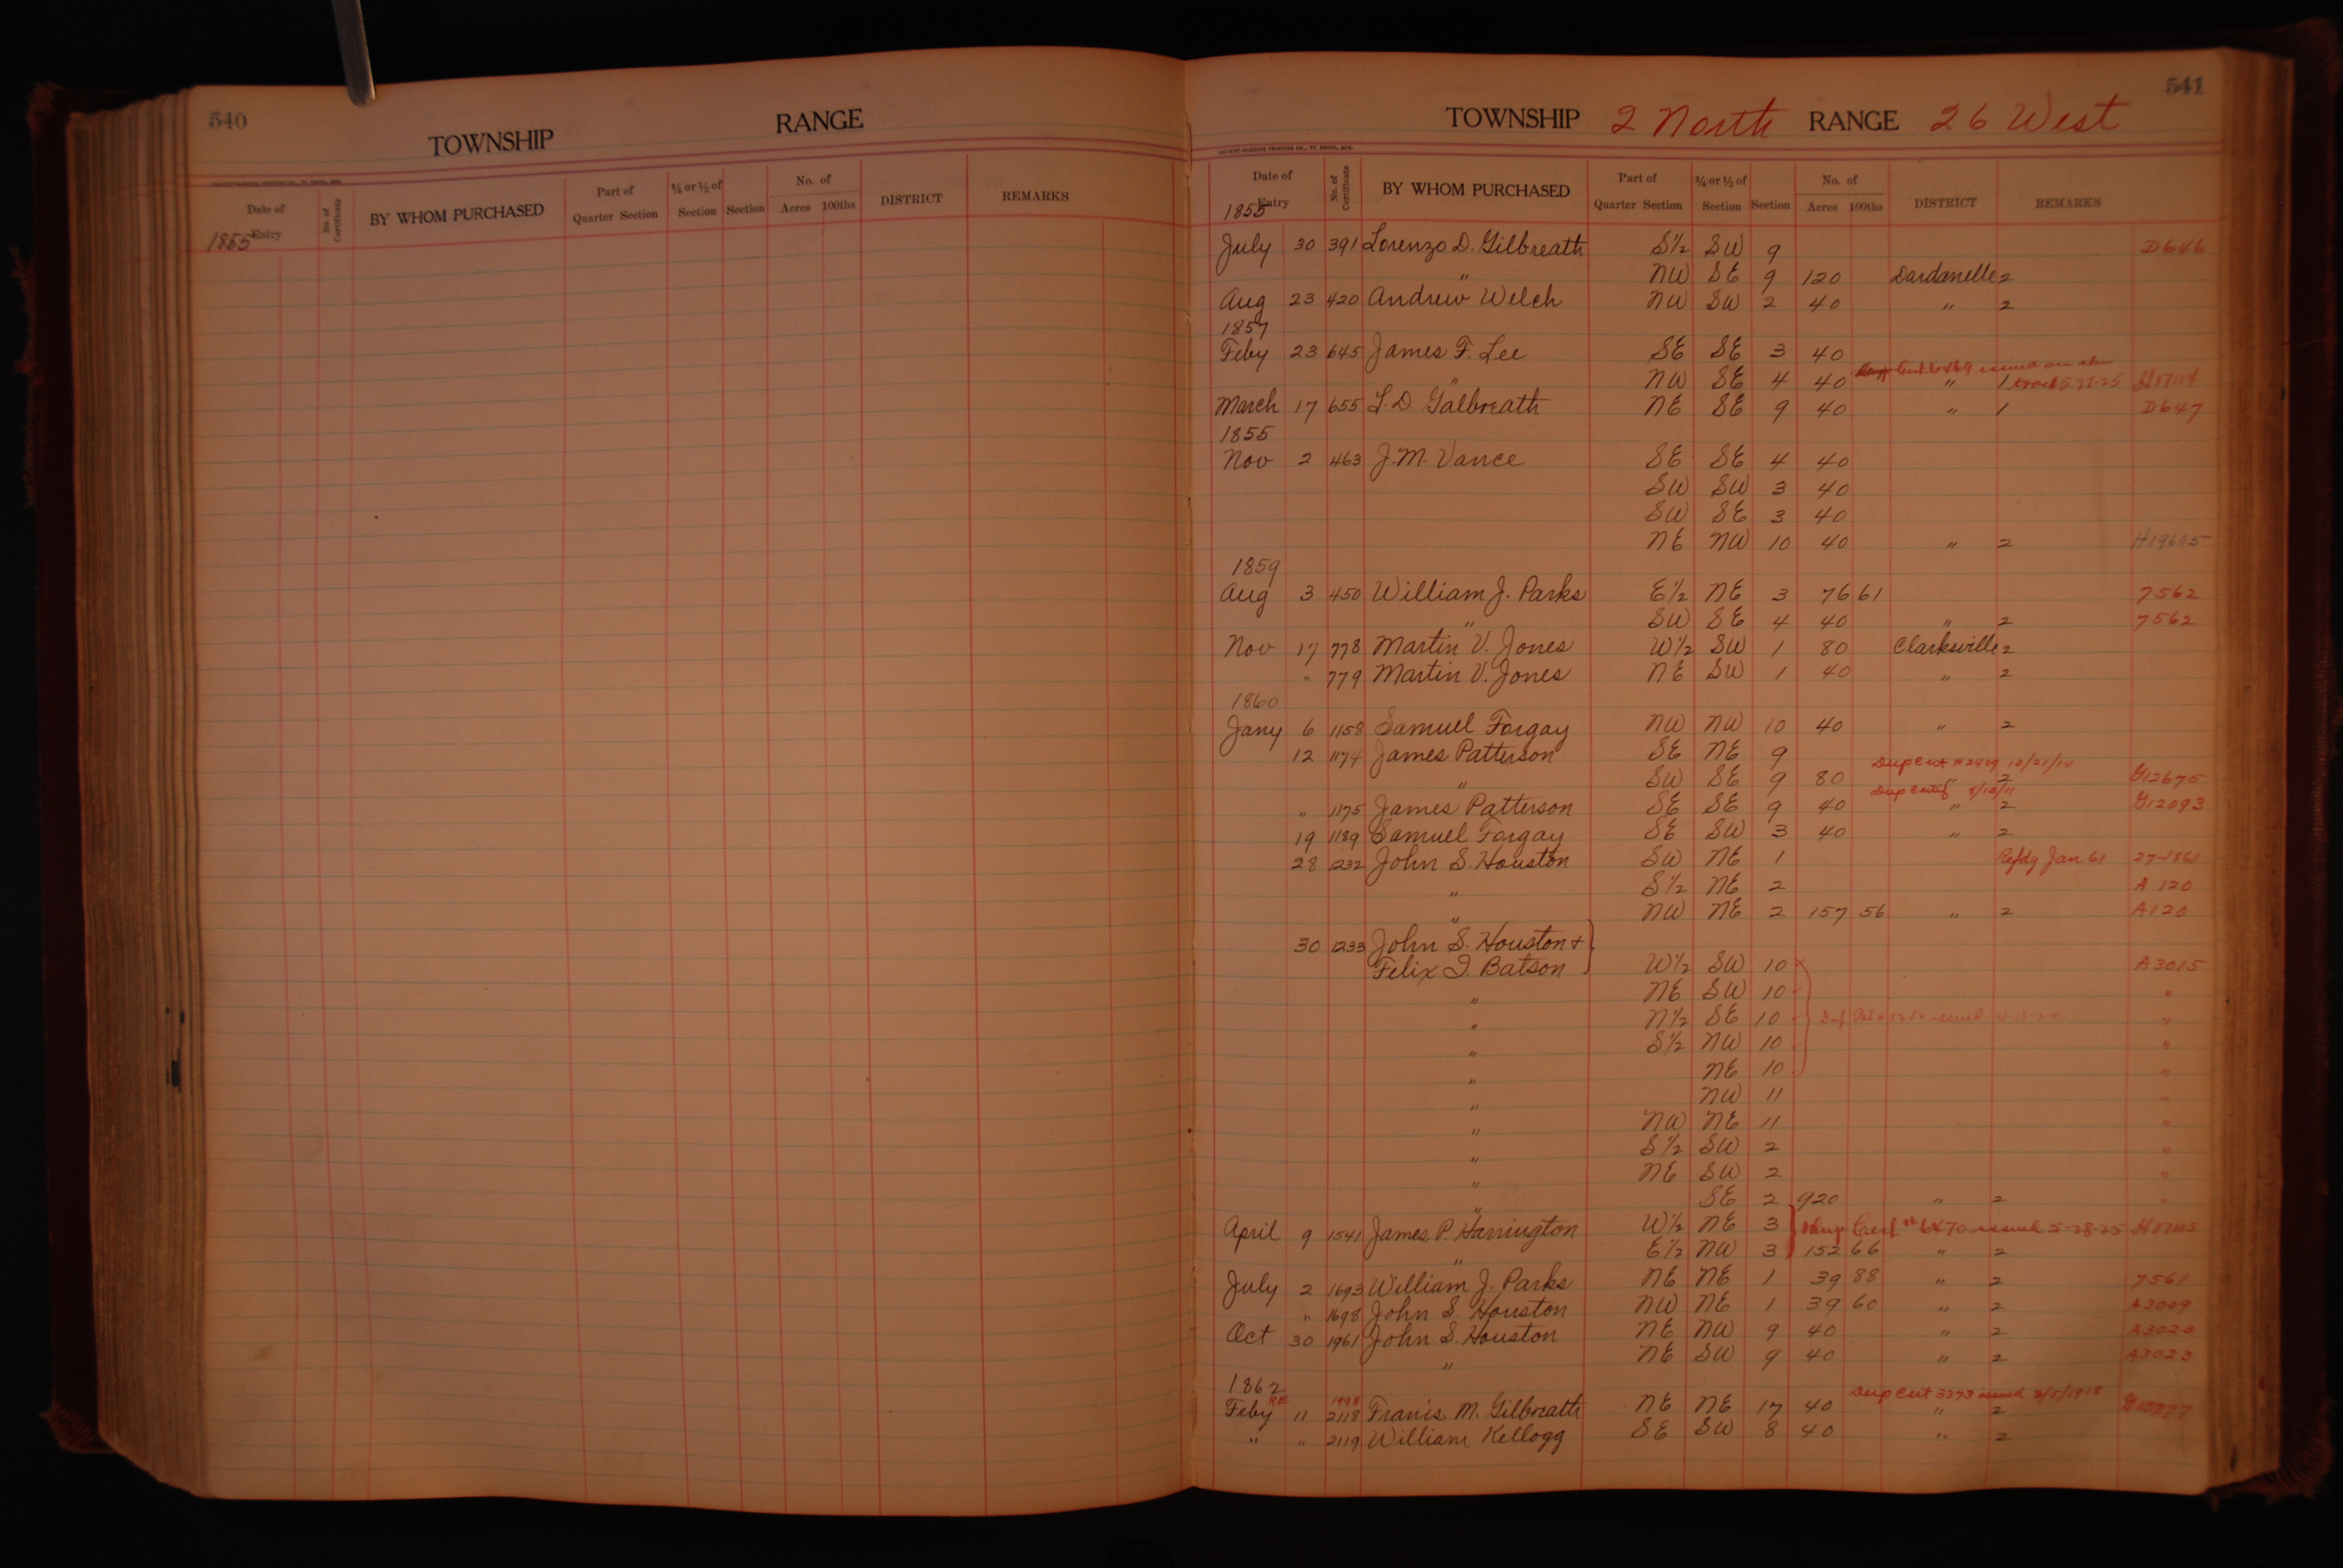 540
TOWNSHIP RANGE
Date of Entry No. of Certificate BY WHOM PURCHASED Part of Quarter Section ¼ or ½ of Section Section No. of Acres 100ths DISTRICT REMARKS
1855
541
TOWNSHIP 2 North RANGE 26 West
Date of Entry No. of Certificate BY WHOM PURCHASED Part of Quarter Section ¼ or ½ of Section Section No. of Acres 100ths DISTRICT REMARKS
1855
July 30 391 Lorenzo D. Gilbreath S½ SW 9 D646
" NW SE 9 120 Dardanelle 2
Aug 23 420 Andrew Welch NW SW 2 40 " 2
1857
Feby 23 645 James F. Lee SE SE 3 40
Cert 6469 issued on
" NW SE 4 40 " 1 tract 5-27-25
March 17 655 L. D. Galbreath NE SE 9 40 " 1 D647
1855
Nov 2 463 J. M. Vance SE SE 4 40
SW SW 3 40
SW SE 3 40
NE NW 10 40 " 2 H19605
1859
Aug 3 450 William J. Parks E½ NE 3 76 61 7562
" SW SE 4 40 " 2 7562
Nov 17 778 Martin V. Jones W½ SW 1 80 Clarksville 2
" 779 Martin V. Jones NE SW 1 40 " 2
1860
Jany 6 1158 Samuel Forgay NW NW 10 40 " 2
12 1174 James Patterson SE NE 9
Dup Cert #2409 10/21/14
" SW SE 9 80 " 2 G12675
Dup Certif
" 1175 James Patterson SE SE 9 40 " 2 G12093
19 1189 Samuel Forgay SE SW 3 40 " 2
28 1232 John S. Houston SW NE 1 Refdg Jan 61 27-1861
" S½ NE 2 A 120
" NW NE 2 157 56 " 2 A120
30 1233 John S. Houston +
Felix I. Batson W½ SW 10 A3015
" NE SW 10 "
" N½ SE 10 issued "
" S½ NW 10 "
" NE 10 "
" NW 11 "
" NW NE 11 "
" S½ SW 2 "
" NE SW 2 "
" SE 2 920 " 2 "
April 9 1541 James P. Harrington W½ NE 3 Dup Cert # 6470 issued 5-28-25
" E½ NW 3 152 66 " 2
July 2 1693 William J. Parks NE NE 1 39 88 " 2 7561
" 1698 John S. Houston NW NE 1 39 60 " 2 A3009
Oct 30 1961 John S. Houston NE NW 9 40 " 2 A3023
" NE SW 9 40 " 2 A3023
1862
1998 Dup Cert 3373 issued 2/5/1918
Feby 11 2118 Franis M. Gilbreath NE NE 17 40 " 2
" " 2119 William Kellogg SE SW 8 40 " 2